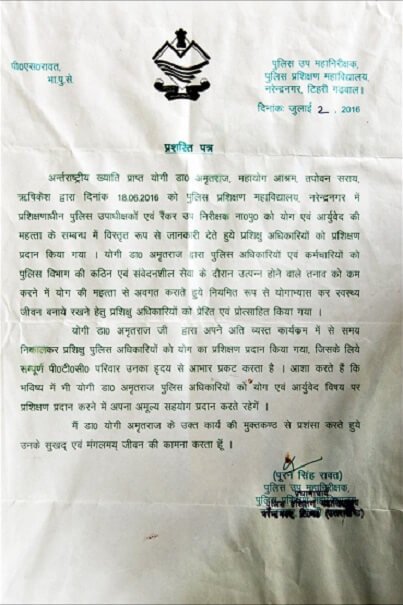 पी०एस०रावत,
भा.पु.से.
पुलिस उप महानिरीक्षक,
पुलिस प्रशिक्षण महाविद्यालय,
नरेन्द्रनगर, टिहरी गढ़वाल।
दिनांकः जुलाई 2, 2016
प्रशस्ति पत्र
अर्न्तराष्ट्रीय ख्याति प्राप्त योगी डा० अमृतराज, महायोग आश्रम, तपोवन सराय,
ऋषिकेश द्वारा दिनांक 18.06.2016 को पुलिस प्रशिक्षण महाविद्यालय, नरेन्द्रनगर में
प्रशिक्षणाधीन पुलिस उपाधीक्षकों एवं रैंकर उप निरीक्षक ना०पु० को योग एवं आर्युवेद की
महत्ता के सम्बन्ध में विस्तृत रूप से जानकारी देते हुये प्रशिक्षु अधिकारियों को प्रशिक्षण
प्रदान किया गया । योगी डा० अमृतराज द्वारा पुलिस अधिकारियों एवं कर्मचारियों को
पुलिस विभाग की कठिन एवं संवेदनशील सेवा के दौरान उत्पन्न होने वाले तनाव को कम
करने में योग की महत्ता से अवगत कराते हुये नियमित रूप से योगाभ्यास कर स्वस्थ्य
जीवन बनाये रखने हेतु प्रशिक्षु अधिकारियों को प्रेरित एवं प्रोत्साहित किया गया ।
योगी डा० अमृतराज जी द्वारा अपने अति व्यस्त कार्यक्रम में से समय
निकालकर प्रशिक्षु पुलिस अधिकारियों को योग का प्रशिक्षण प्रदान किया गया, जिसके लिये
सम्पूर्ण पी०टी०सी० परिवार उनका हृदय से आभार प्रकट करता है । आशा करते हैं कि
भविष्य में भी योगी डा० अमृतराज पुलिस अधिकारियों को योग एवं आर्युवेद विषय पर
प्रशिक्षण प्रदान करने में अपना अमूल्य सहयोग प्रदान करते रहेगें ।
मैं डा० योगी अमृतराज के उक्त कार्य की मुक्तकण्ठ से प्रशंसा करते हुये
उनके सुखद् एवं मंगलमय् जीवन की कामना करता हूँ ।
(पूरन सिंह रावत)
पुलिस उप महानिरीक्षक,
पुलिस प्रशिक्षण महाविद्यालय